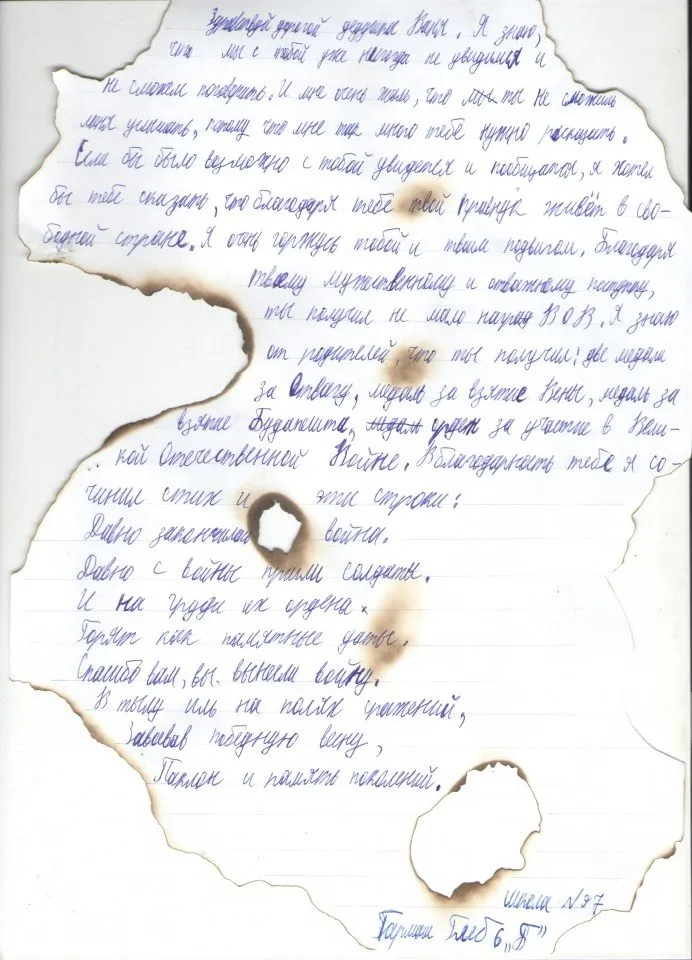 Здравствуй дорогой дедушка Ваня. Я знаю,
что мы с тобой уже никогда не увидимся и
не сможем поговорить. И мне очень жаль, что ты не сможешь
меня услышать, потому что мне так много тебе нужно рассказать.
Если бы было возможно с тобой увидется и пообщатся, я хотел
бы тебе сказать, что благодаря тебе твой правнук живёт в сво-
бодной стране. Я очень горжусь тобой и твоим подвигом. Благодаря
твоему мужественному и отважному поступку,
ты получил не мало наград ВОВ. Я знаю
от родителей, что ты получил: две медали
за Отвагу, медаль за взятие Вены, медаль за
взятие Будапешта, орден за участие в Вели-
кой Отечественной Войне. В благодарность тебе я со-
чинил стих и эти строки:
Давно закончилась война.
Давно с войны пришли солдаты.
И на груди их ордена.
Горят как памятные даты.
Спасибо вам, вы вынесли войну.
В тылу иль на полях сражений,
Завоевав победную весну,
Паклон и память поколений.
Школа №97
Глеб 6 „Б"